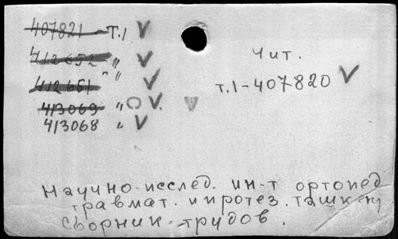 407821 - Т.1 V
412652 " V
412651 " " V
413069 " О V
413068 " V
Чит.
т.1-407820 V
Научно-исслед. ин-т ортопед
травмат. и протез. Ташкент
Сборник трудов.